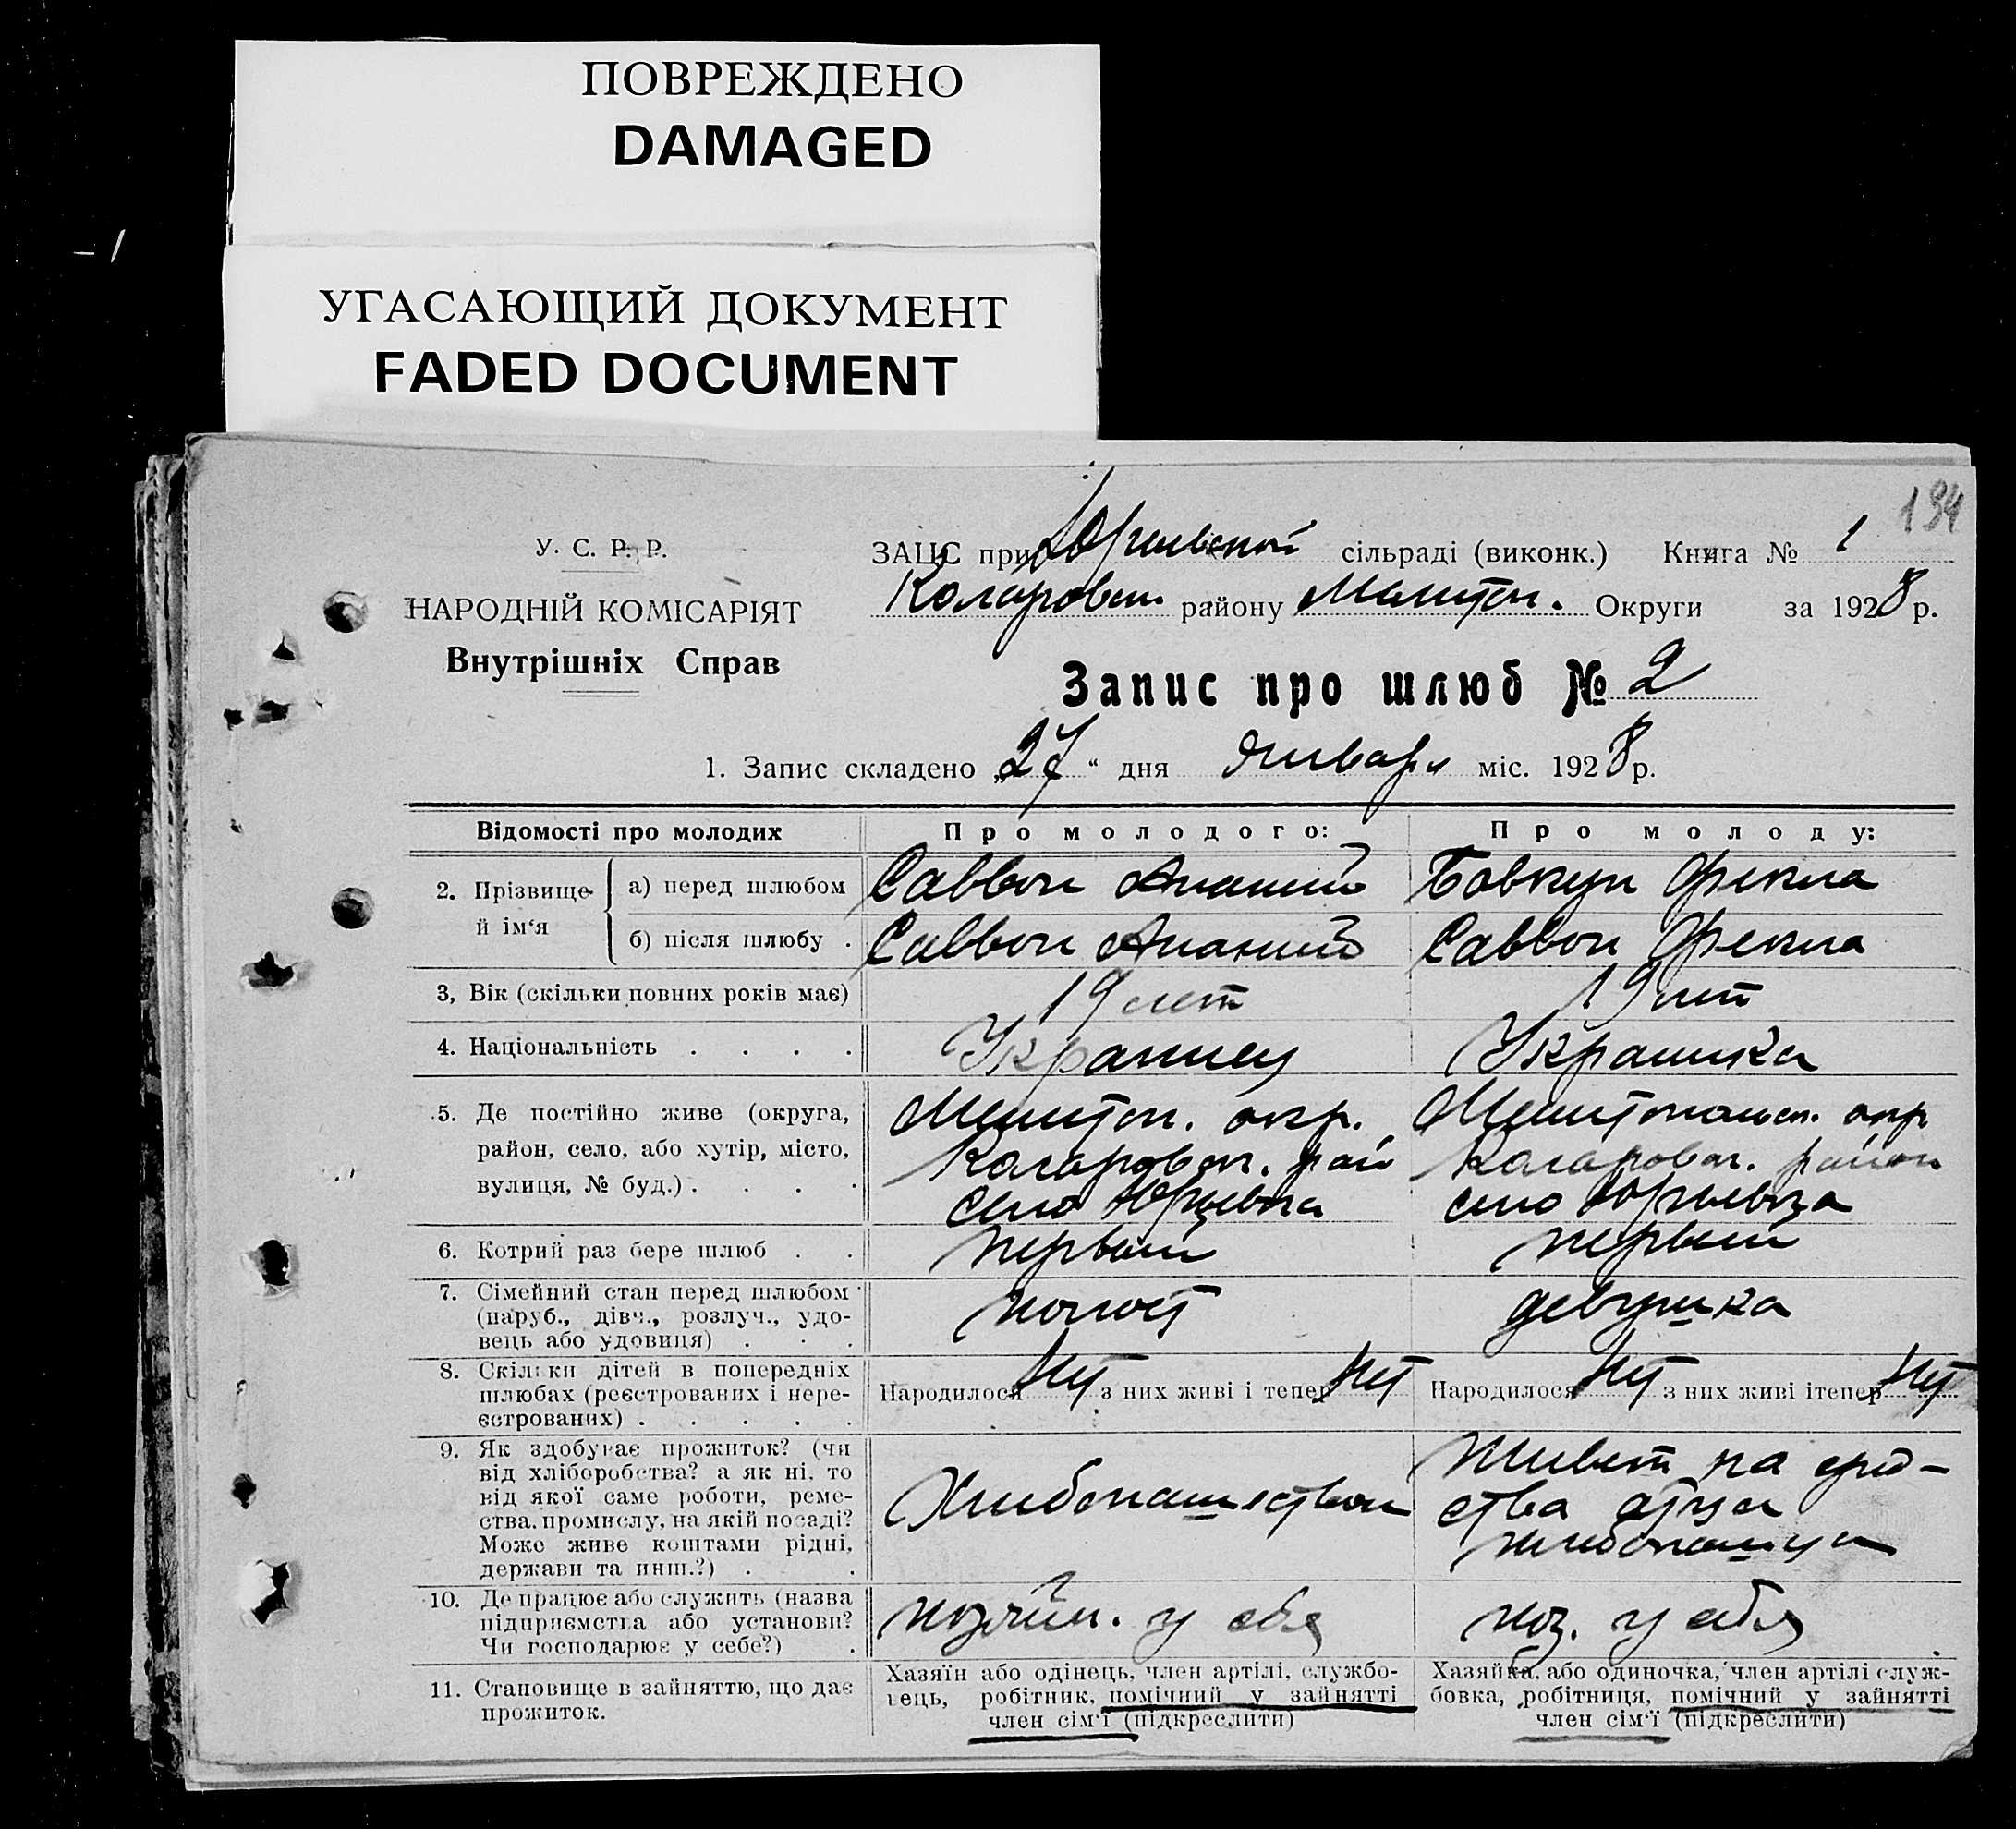 ПОВРЕЖДЕНО
DAMAGED
УГАСАЮЩИЙ ДОКУМЕНТ
FADED DOCUMENT
194
У. С. Р. Р.
НАРОДНІЙ КОМІСАРІЯТ
Внутрішніх Справ
ЗАЦС при Юрьевской сільраді (виконк.) Книга № 1
Коларовск. району Мелитоп. Округи за 1928 р.
Запис про шлюб № 2
1. Запис складено „27“ дня Января міс. 1928 р.
Відомості про молодих Про молодого: Про молоду:
2. Прізвище й ім‘я а) перед шлюбом Саввон Ананий Бовкун Фекла
б) після шлюбу . Саввон Ананий Саввон Фекла
3, Вік (скільки повних років має) 19 лет 19 лет
4. Національність . . . . Украинец Украинка
5. Де постійно живе (округа, район, село, або хутір, місто, вулиця, № буд.) . . . .
Мелитоп. окр.
Коларовск. рай
село Юрьевка
Мелитопольск. окр
Коларовск. район
село Юрьевка
6. Котрий раз бере шлюб . . первый первый
7. Сімейний стан перед шлюбом
(паруб., дівч., розлуч., удо-
вець або удовиця) . . .
холост девушка
8. Скільки дітей в попередніх
шлюбах (реєстрованих і нере-
єстрованих) . . . . .
Народилося нет з них живі і тепер нет
Народилося нет з них живі ітепер нет
9. Як здобуває прожиток? (чи
від хліборобства? а як ні, то
від якої саме роботи, реме-
ства, промислу, на якій посаді?
Може живе коштами рідні,
держави та инш.?) . .
Хлебопашеством
Живет на сред-
ства отца
хлебопашца
10. Де працює або служить (назва
підприємства або установи?
Чи господарює у себе?) .
хозяйн. у себя
хоз. у себя
11. Становище в зайняттю, що дає
прожиток.
Хазяїн або одінець, член артілі, службо-
вець, робітник, помічний у зайнятті
член сім‘ї (підкреслити)
Хазяйка, або одиночка, член артілі служ-
бовка, робітниця, помічний у зайнятті
член сім‘ї (підкреслити)